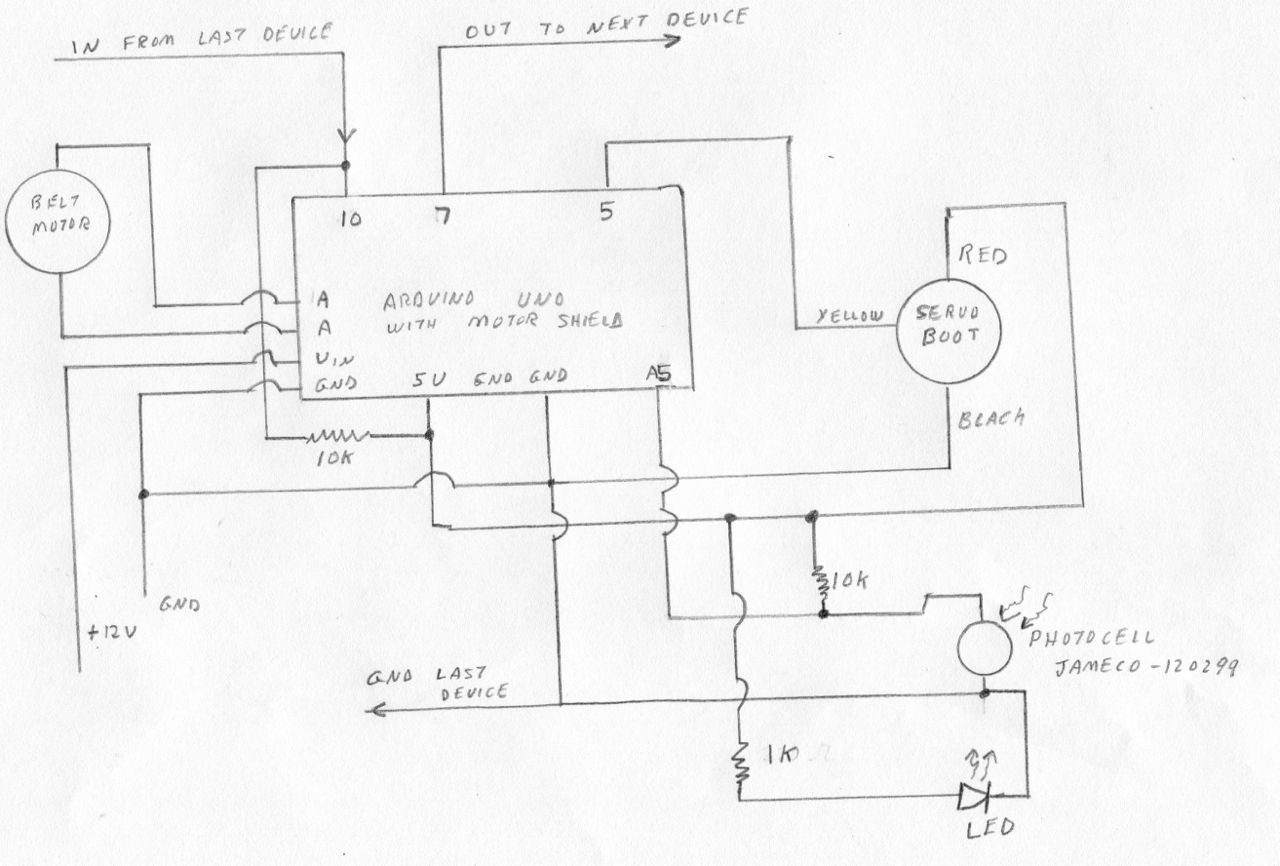 IN FROM LAST DEVICE
OUT TO NEXT DEVICE
BELT
MOTOR
10
7
5
RED
1A
ARDUINO UNO
A
WITH MOTOR SHIELD
YELLOW
SERVO
BOOT
VIN
GND
5V
GND
GND
A5
BLACK
10K
10K
GND
+12V
PHOTOCELL
JAMECO-120299
GND LAST
DEVICE
1K
LED